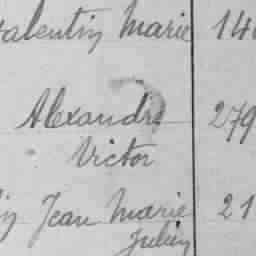 Valentin Marie 14
Alexandre 279
Victor
Jean Marie 21
Julien